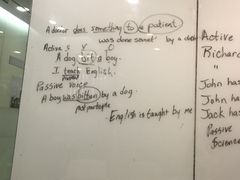 A doctor does something to a patient
was done somet' by a doc
Active S V O
A dog bit a boy.
I teach English.
Passive Voice
A boy was bitten by a dog.
English is taught by me
Active
Richar
"
John has
John ha
Jack ha
Passive
Science